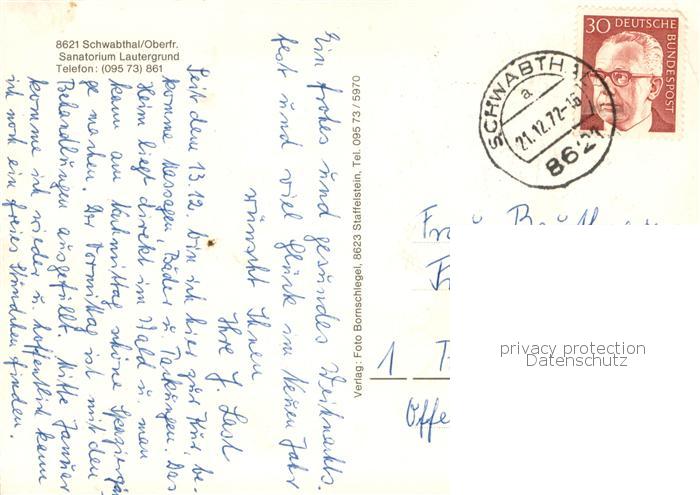 8621 Schwabthal/Oberfr.
Sanatorium Lautergrund
Telefon: (095 73) 861
Ein frohes und gesundes Weihnachts-
fest und viel Glück im Neuen Jahr
wünscht Ihnen
Ihre J. Last
Seit dem 13.12. bin ich hier zur Kur, be-
komme Massagen, Bäder u. Packungen. Das
Heim liegt direkt im Wald u. man
kann am Nachmittag schöne Spaziergän
ge machen. Der Vormittag ist mit den
Behandlungen ausgefüllt. Mitte Januar
komme ich wieder u. hoffentlich kann
ich noch ein freies Stündchen finden.
Verlag: Foto Bornschlegel, 8623 Staffelstein, Tel. 095 73 / 5970
30 DEUTSCHE
BUNDESPOST
SCHWABTH
a
21.12.72-16
8621
Frau
1
Offe
privacy protection
Datenschutz